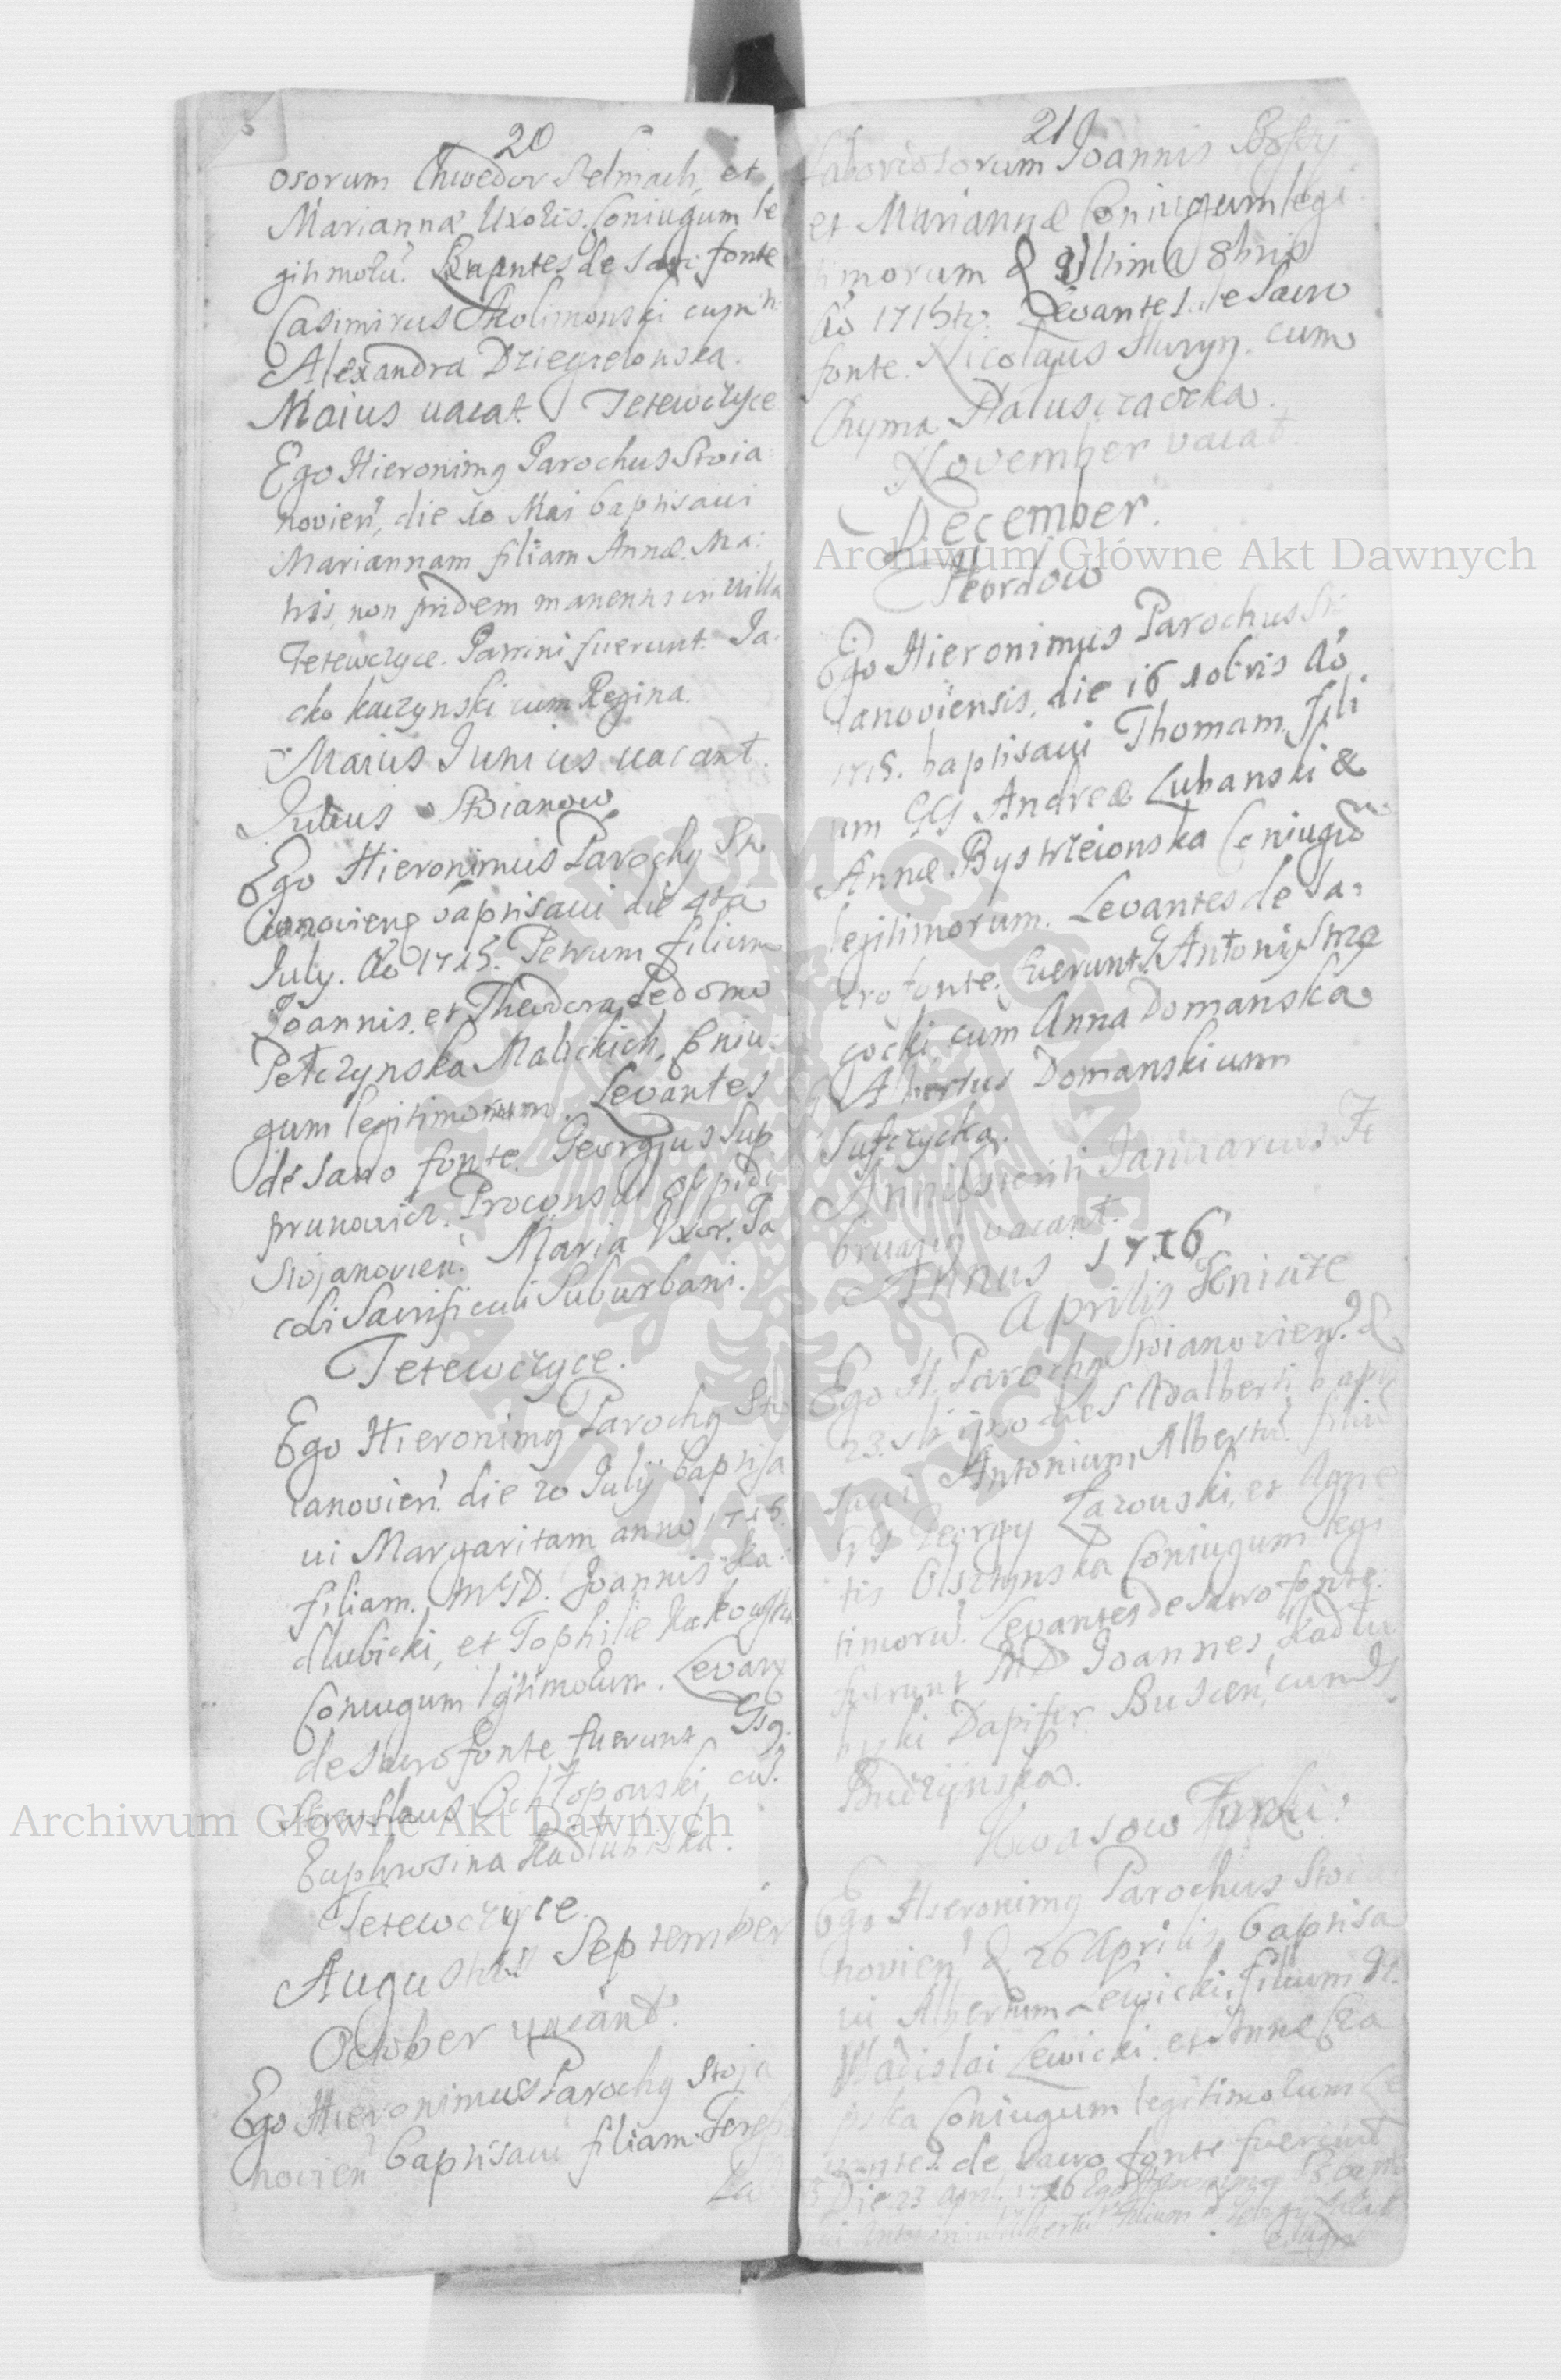 20
osorum Chwedor Selmach, et
Mariannæ Uxoris. Coniugum le
gitimoru. Levantes de Sacr: fonte
Casimirus Skolimonski cum
Alexandra Dziegzelonska.
Maius vacat. Tetewczyce
Ego Hieronimg Parochus Stoia
novien, die 10 Mai baptisavi
Mariannam filiam Annæ Ma:
tris, non pridem manentis in Villa
Tetewczyce. Patrini fuerunt. Ja:
cko Kaczynski cum Regina.
Maius Junius vacant.
Julius Stoianow
Ego Hieronimus Parochg Sto
ianoviens baptisavi die 4ta
July. Ao 1715. Petrum filium
Joannis et Theodora de domo
Petczynska Malickich, Coniu:
gum legitimorum. Levantes
de Sacro fonte. Georgius Sup
prunowicz. Proconsul oppidi
Stojanovien. Maria Uxor. Pa
cdi Sacrificuli Suburbani.
Tetewczyce.
Ego Hieronimg Parochg Sto
ianovien. die 20 Julij baptisa
vi Margaritam anno 1715.
filiam. MGD. Joannis Ka
dlubicki, et Tophile
Coniugum legitimorum. Levan
de Sacro fonte fuerunt Gsg.
Ochtoponski, cu.
Euphrosina Kadlubiska.
Tetewczyce.
Augustus September
October vacant.
Ego Hieronimus Parochg Stoja
novien baptisavi filiam
La
21
Laboriosorum Joannis
et Mariannæ Coniugum legi
timorum d ultima 8bris
Ao 1715to. Levantes de Sacro
fonte. Nicolaus Huryn. cum
Chyma Patusczaczka.
November vacat.
December.
Hordow
Ego Hieronimus Parochus St
ianoviensis, die 16 10bris Ao
1715. baptisavi Thomam fili
um GG Andreæ Lubanski &
Annæ Bystrzeionska Coniugu
legitimorum. Levantes de Sa:
cro fonte. fuerunt. G Antonig Strze
gocki cum Anna Domanska
G Albertus Domanski cum
Sufczycka.
Anni Januarius Fe
bruarig vacant.
Annus 1716
Aprilis Heniate
Ego H. Parochg Stoianovien. d
23. ipso die S Adalberti bapti
savi Antonium, Albertu. filiu
GG Georgy Lazouski, et Agne
tis Olszynska Coniugum legi
timoru. Levantes de Sacro fonte.
fuerunt MD Joannes Kadlu
biski Dapifer Buscen, cum
Budzynska.
Kwasow
Ego Hieronimg Parochus Stoia
novien d. 26 Aprilis baptisa
vi Albertum Lewicki, filium G.
Wladislai Lewicki. et Annæ Cza
pska Coniugum legitimorum Le
vantes. de Sacro fonte fuerunt
Die 23 April. 1716 Ego Hieronimg P. bapti
vi Antoniu Albertu filium